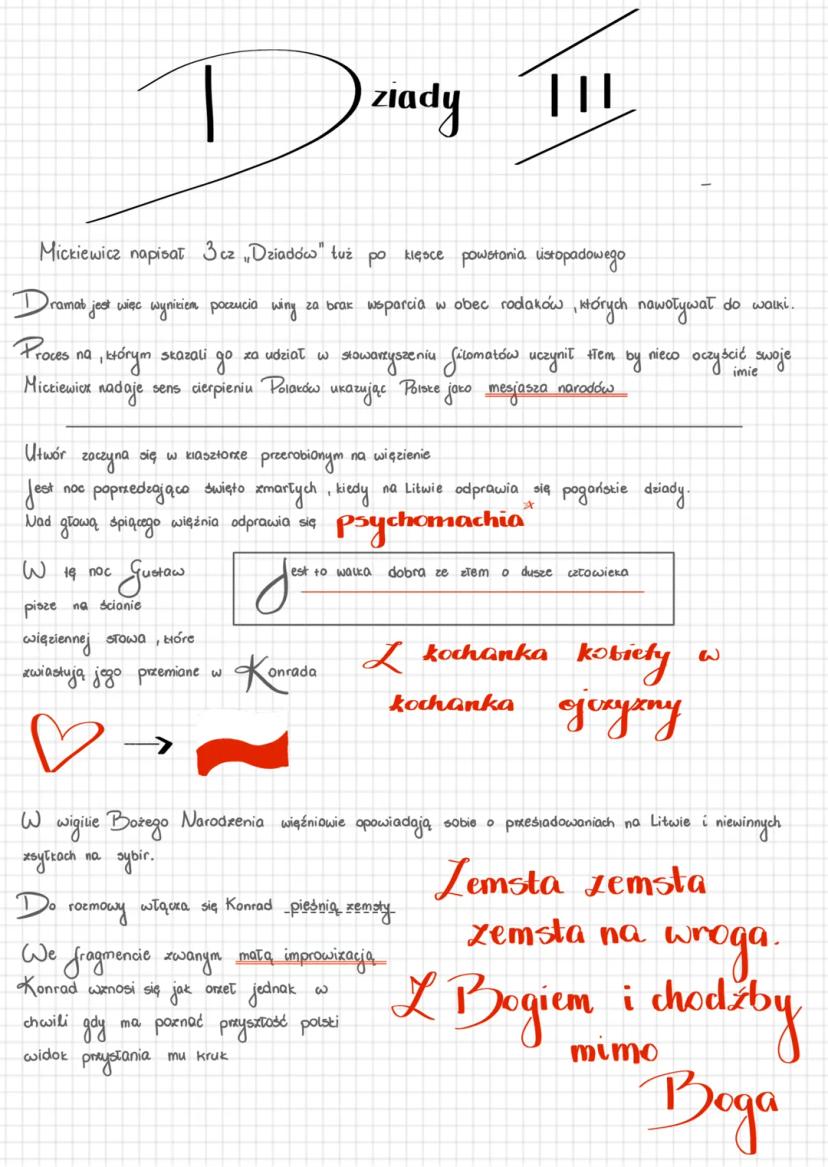 Dziady III
Mickiewicz napisał 3cz „Dziadów" tuż po klęsce powstania listopadowego
Dramat jest więc wynikiem poczucia winy za brak wsparcia w obec rodaków, których nawoływał do walki.
Proces na, którym skazali go za udział w stowarzyszeniu filomatów uczynił tłem by nieco oczyścić swoje
imie
Mickiewicz nadaje sens cierpieniu Polaków ukazując Polske jako mesjasza narodów
Utwór zaczyna się w klasztorze przerobionym na więzienie
Jest noc poprzedzająca święto zmarłych, kiedy na Litwie odprawia się pogańskie dziady.
Nad głową śpiącego więźnia odprawia się psychomachia*
Jest to walka dobra ze złem o dusze człowieka
W tę noc Gustaw
pisze na ścianie
więziennej słowa, które
zwiastują jego przemiane w Konrada
Z kochanka kobiety w
kochanka ojczyzny
W wigilie Bożego Narodzenia więźniowie opowiadają sobie o prześladowaniach na Litwie i niewinnych
zsyłkach na sybir.
Do rozmowy włącza się Konrad pieśnią zemsty
Zemsta zemsta
zemsta na wroga.
Z Bogiem i chodźby
mimo
Boga
We fragmencie zwanym małą improwizacją
Konrad wznosi się jak orzeł jednak w
chwili gdy ma poznać przyszłość polski
widok przysłania mu kruk